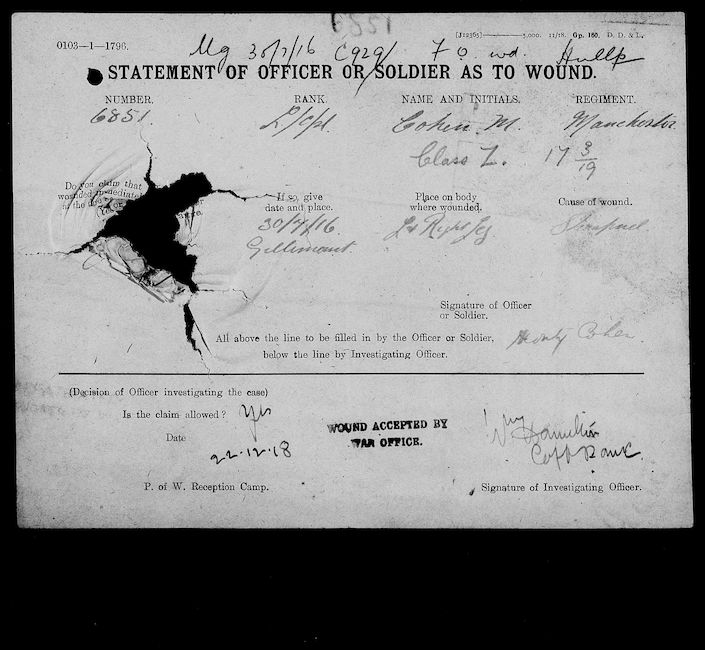 [J12363] 5,000. 11/18. Gp. 160. D. D. & L.
0103—1—1796.
Mg 30/7/16
STATEMENT OF OFFICER OR SOLDIER AS TO WOUND.
NUMBER. RANK. NAME AND INITIALS. REGIMENT.
6851 L/Cpl Cohen M. Manchester
Class Z. 17 3/19
Do you claim that
wounded immediately
in the
If so, give
date and place.
Place on body
where wounded.
Cause of wound.
30/7/16. Lt Right Leg Shrapnel
Guillemont
Signature of Officer
or Soldier.
All above the line to be filled in by the Officer or Soldier,
below the line by Investigating Officer.
Monty Cohen
(Decision of Officer investigating the case)
Is the claim allowed? Yes
Date
22.12.18
WOUND ACCEPTED BY
WAR OFFICE.
Hamilton
P. of W. Reception Camp. Signature of Investigating Officer.